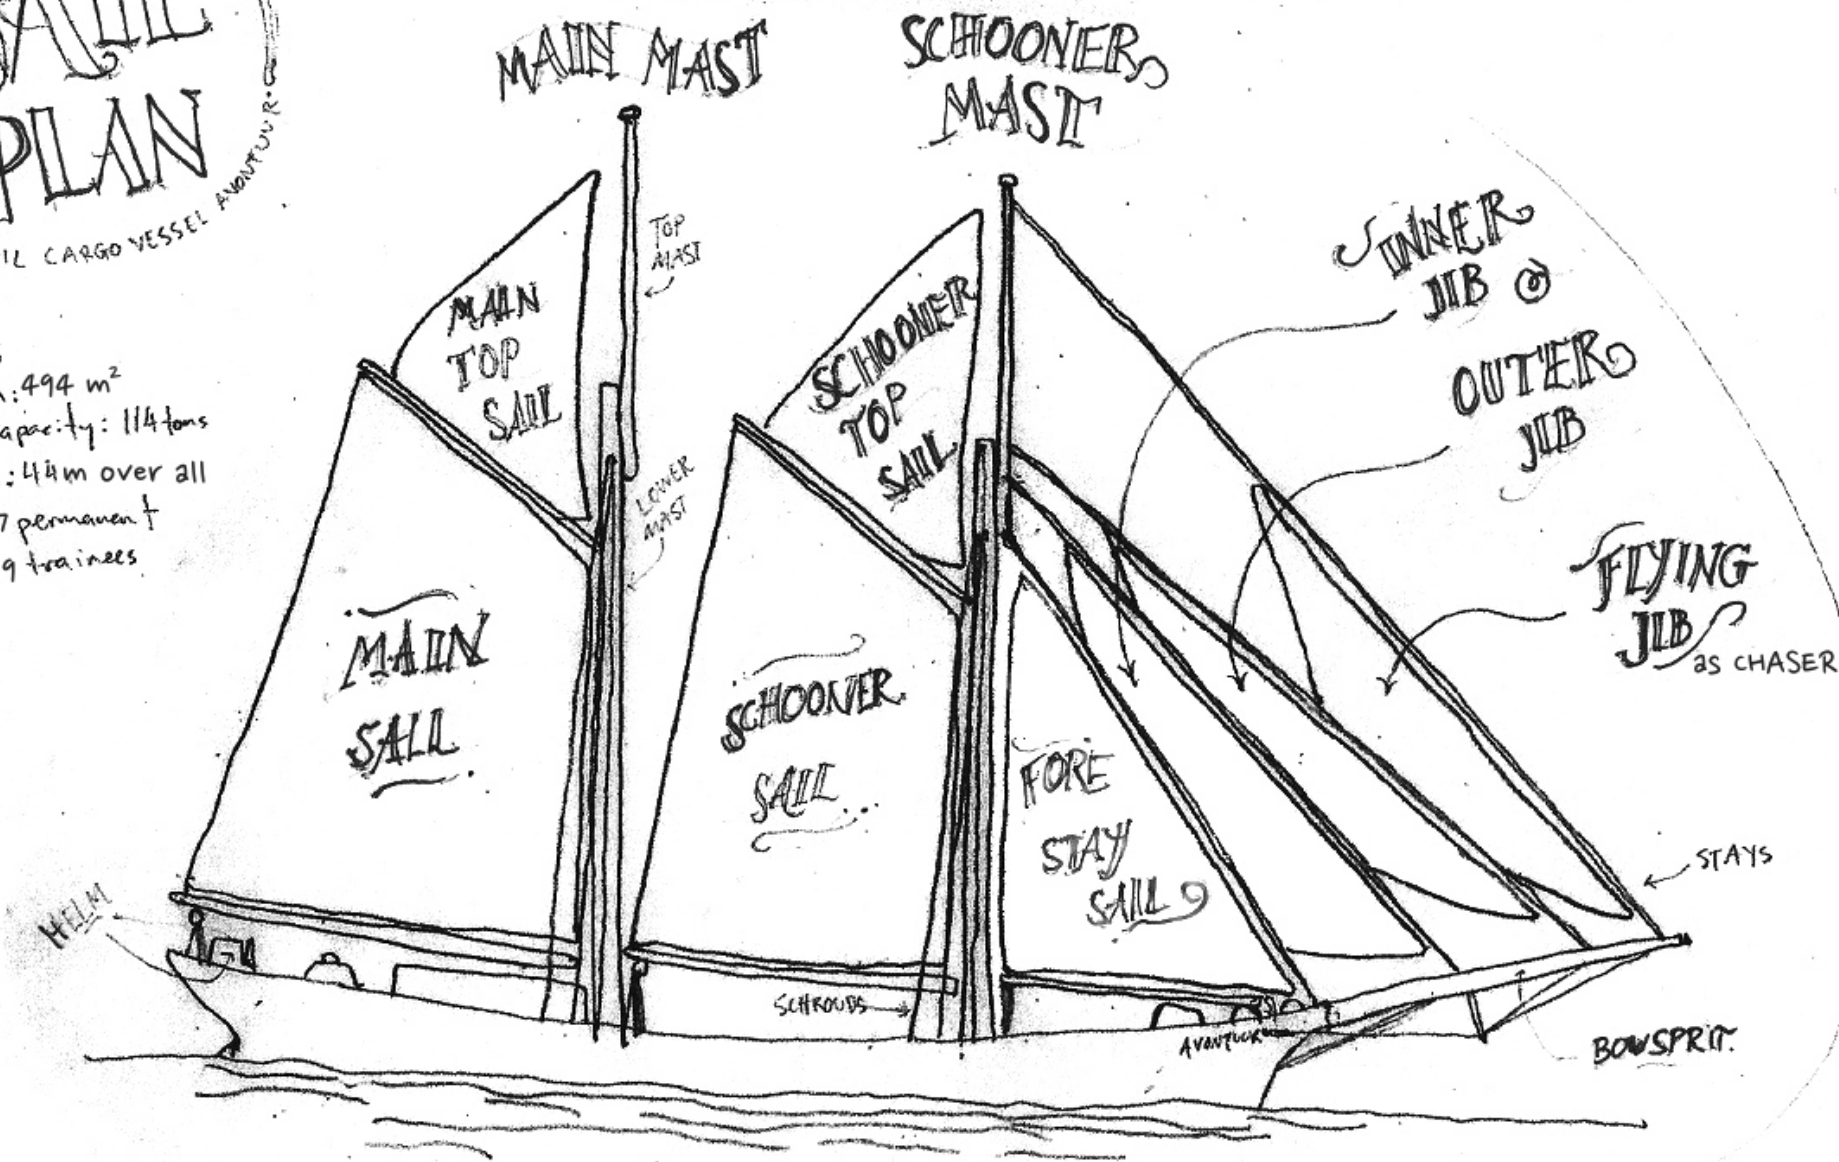 SAIL
PLAN
IL CARGO VESSEL AVONTUUR.
: 494 m²
apacity: 114 tons
: 44m over all
7 permanent
9 trainees
MAIN MAST
SCHOONER
MAST
TOP
MAST
MAIN
TOP
SAIL
SCHOONER
TOP
SAIL
INNER
JIB
OUTER
JIB
FLYING
JIB
as CHASER
LOWER
MAST
MAIN
SAIL
SCHOONER
SAIL
FORE
STAY
SAIL
STAYS
HELM
SCHROUDS
AVONTUUR
BOWSPRIT.